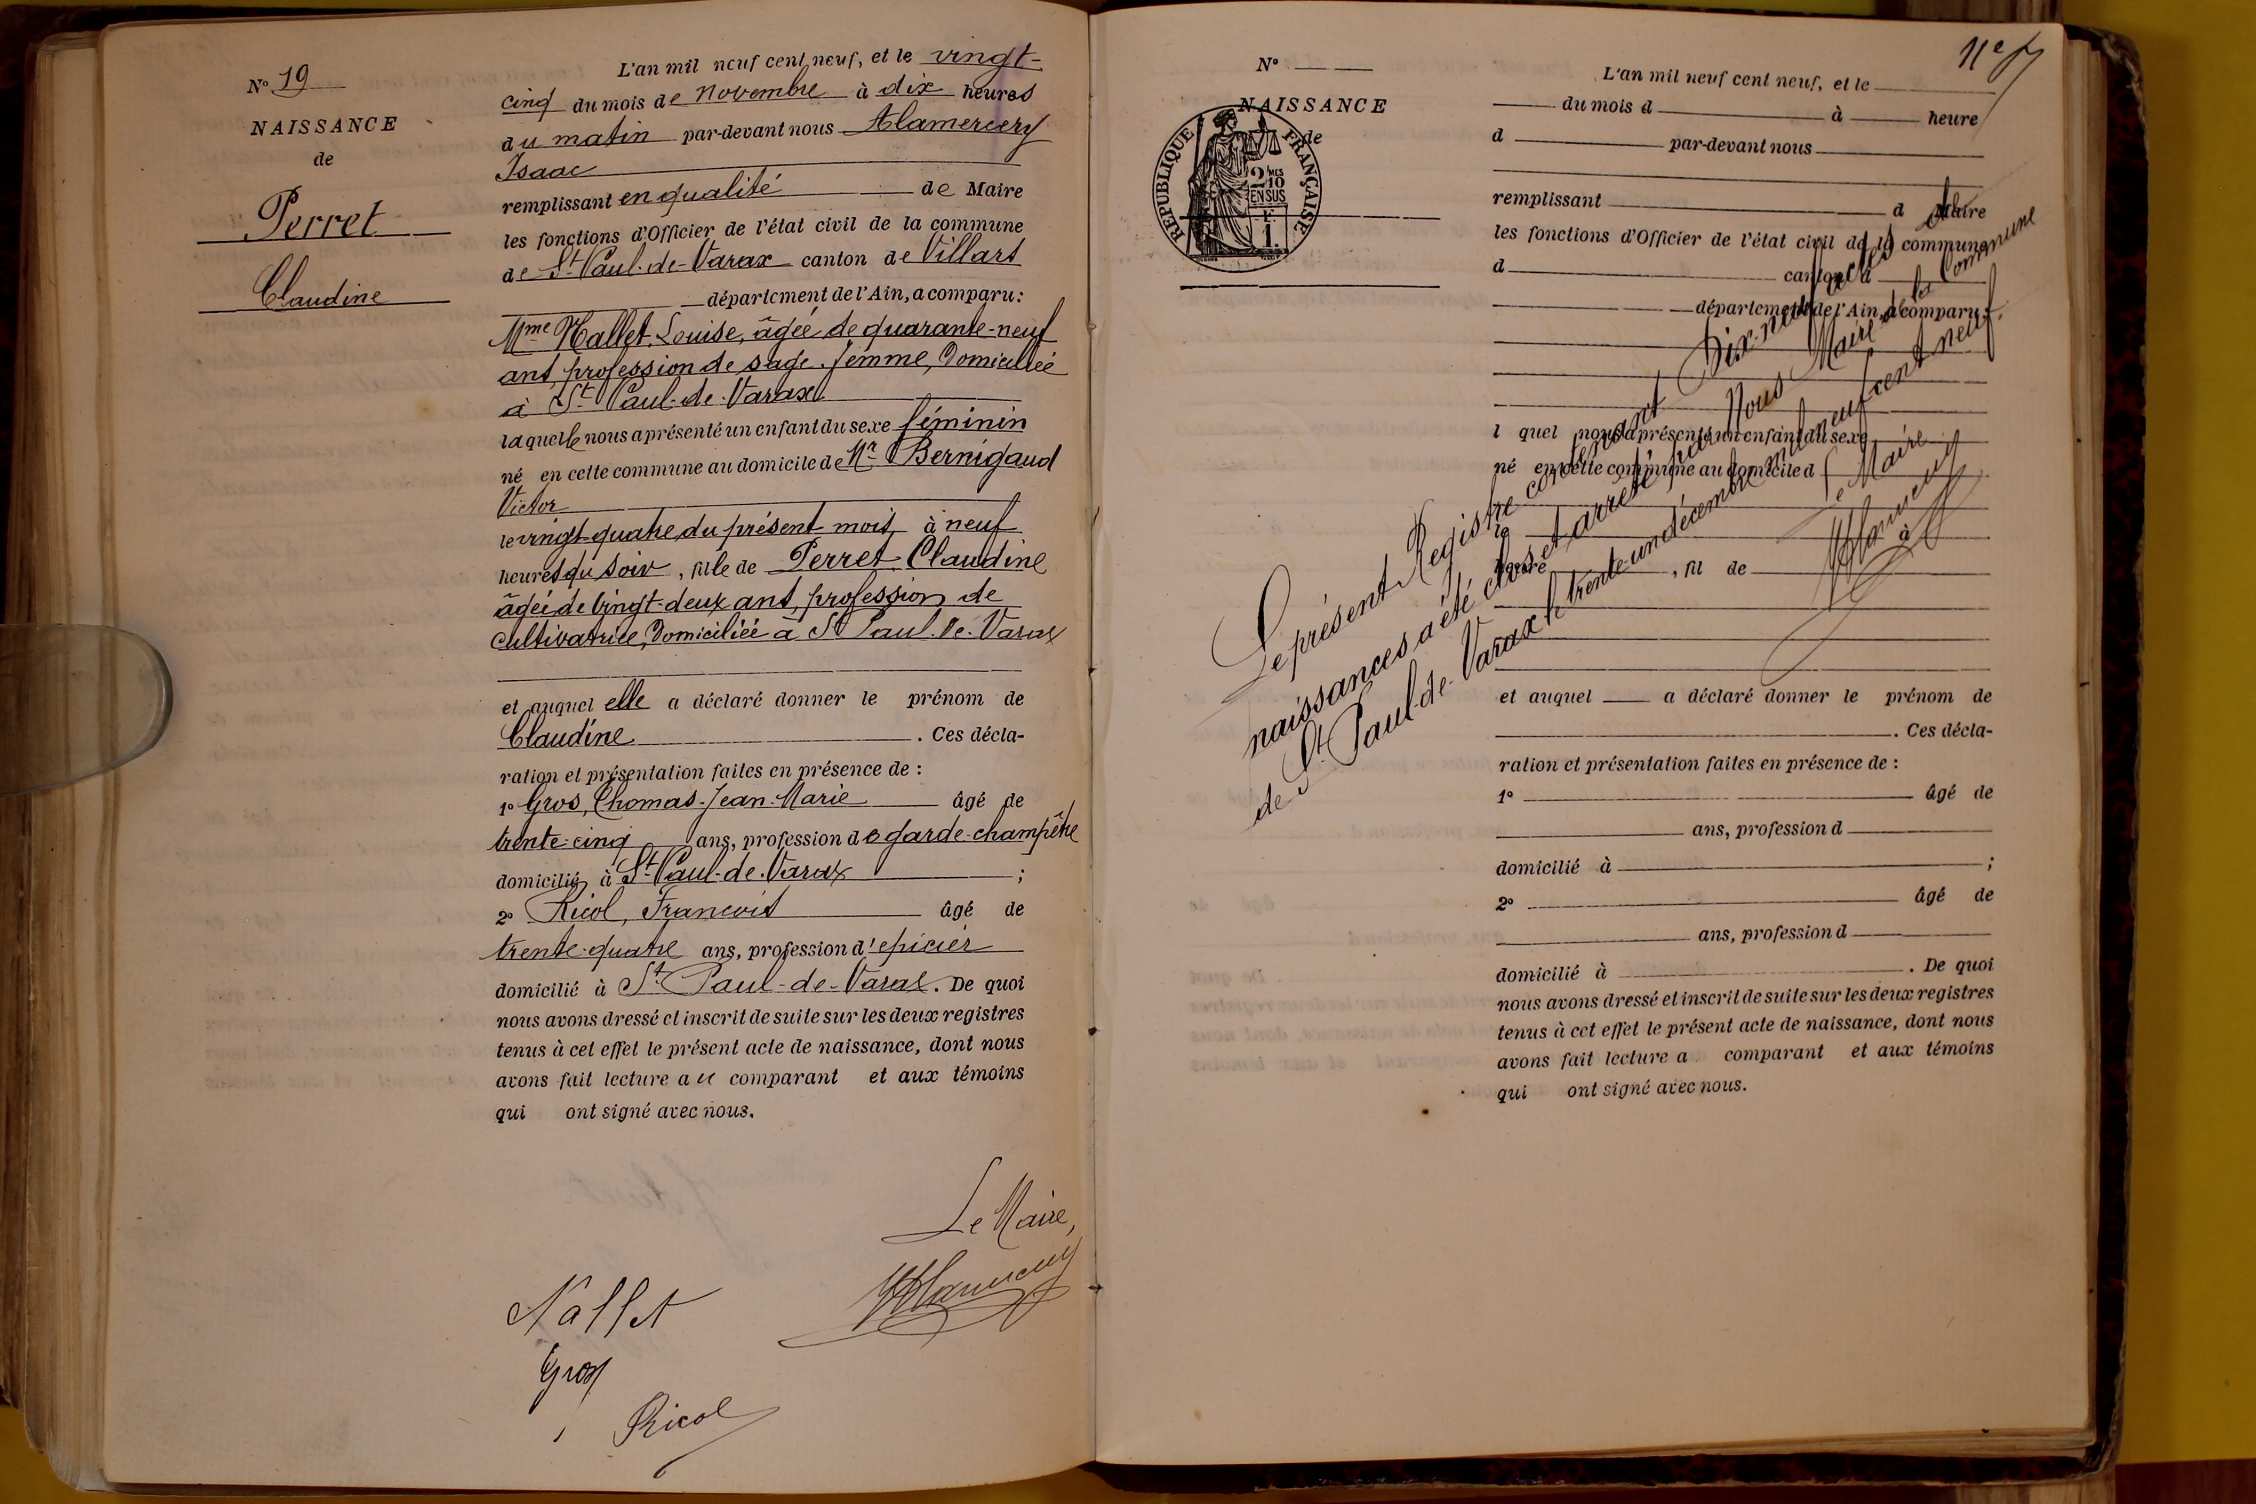 N° 19
NAISSANCE
de
Perret
Claudine
L'an mil neuf cent neuf, et le vingt-
cinq du mois de Novembre à dix heures
du matin par-devant nous Alamercery
Isaac
remplissant en qualité de Maire
les fonctions d'Officier de l'état civil de la commune
de St Paul-de-Varax canton de Villars
département de l'Ain, a comparu:
Mme Nallet Louise, âgée de quarante-neuf
ans, profession de sage-femme, Domiciliée
à St Paul-de-Varax
laquelle nous a présenté un enfant du sexe féminin
né en cette commune au domicile de Mr Bernigaud
Victor
le vingt quatre du présent mois à neuf
heures du soir, fille de Perret Claudine
âgée de vingt-deux ans, profession de
cultivatrice, Domiciliée à St Paul-de-Varax
et auquel elle a déclaré donner le prénom de
Claudine. Ces décla-
ration et présentation faites en présence de :
1° Gros, Thomas-Jean-Marie âgé de
trente-cinq ans, profession de garde-champêtre
domicilié à St Paul-de-Varax ;
2° Ricol, Francois âgé de
trente-quatre ans, profession d'epicier
domicilié à St Paul-de-Varax. De quoi
nous avons dressé et inscrit de suite sur les deux registres
tenus à cet effet le présent acte de naissance, dont nous
avons fait lecture au comparant et aux témoins
qui ont signé avec nous.
Le Maire,
Nallet
Gros
Ricol
N°
NAISSANCE
de
RÉPUBLIQUE FRANÇAISE
2 MES
10
EN SUS
1
L'an mil neuf cent neuf, et le
du mois d à heure
d par-devant nous
remplissant d Maire
les fonctions d'Officier de l'état civil de la commune
d canton d
département de l'Ain, a comparu:
l quel nous a présenté un enfant du sexe
né en cette commune au domicile d
le à
heure , fil de
Le présent Registre contenant Dix-neuf actes de
naissances a été clos et arrêté par Nous Maire de la Commune
de St Paul-de-Varax le trente-un décembre mil neuf cent neuf.
Le Maire
et auquel a déclaré donner le prénom de
. Ces décla-
ration et présentation faites en présence de :
1° âgé de
ans, profession d
domicilié à ;
2° âgé de
ans, profession d
domicilié à . De quoi
nous avons dressé et inscrit de suite sur les deux registres
tenus à cet effet le présent acte de naissance, dont nous
avons fait lecture a comparant et aux témoins
qui ont signé avec nous.